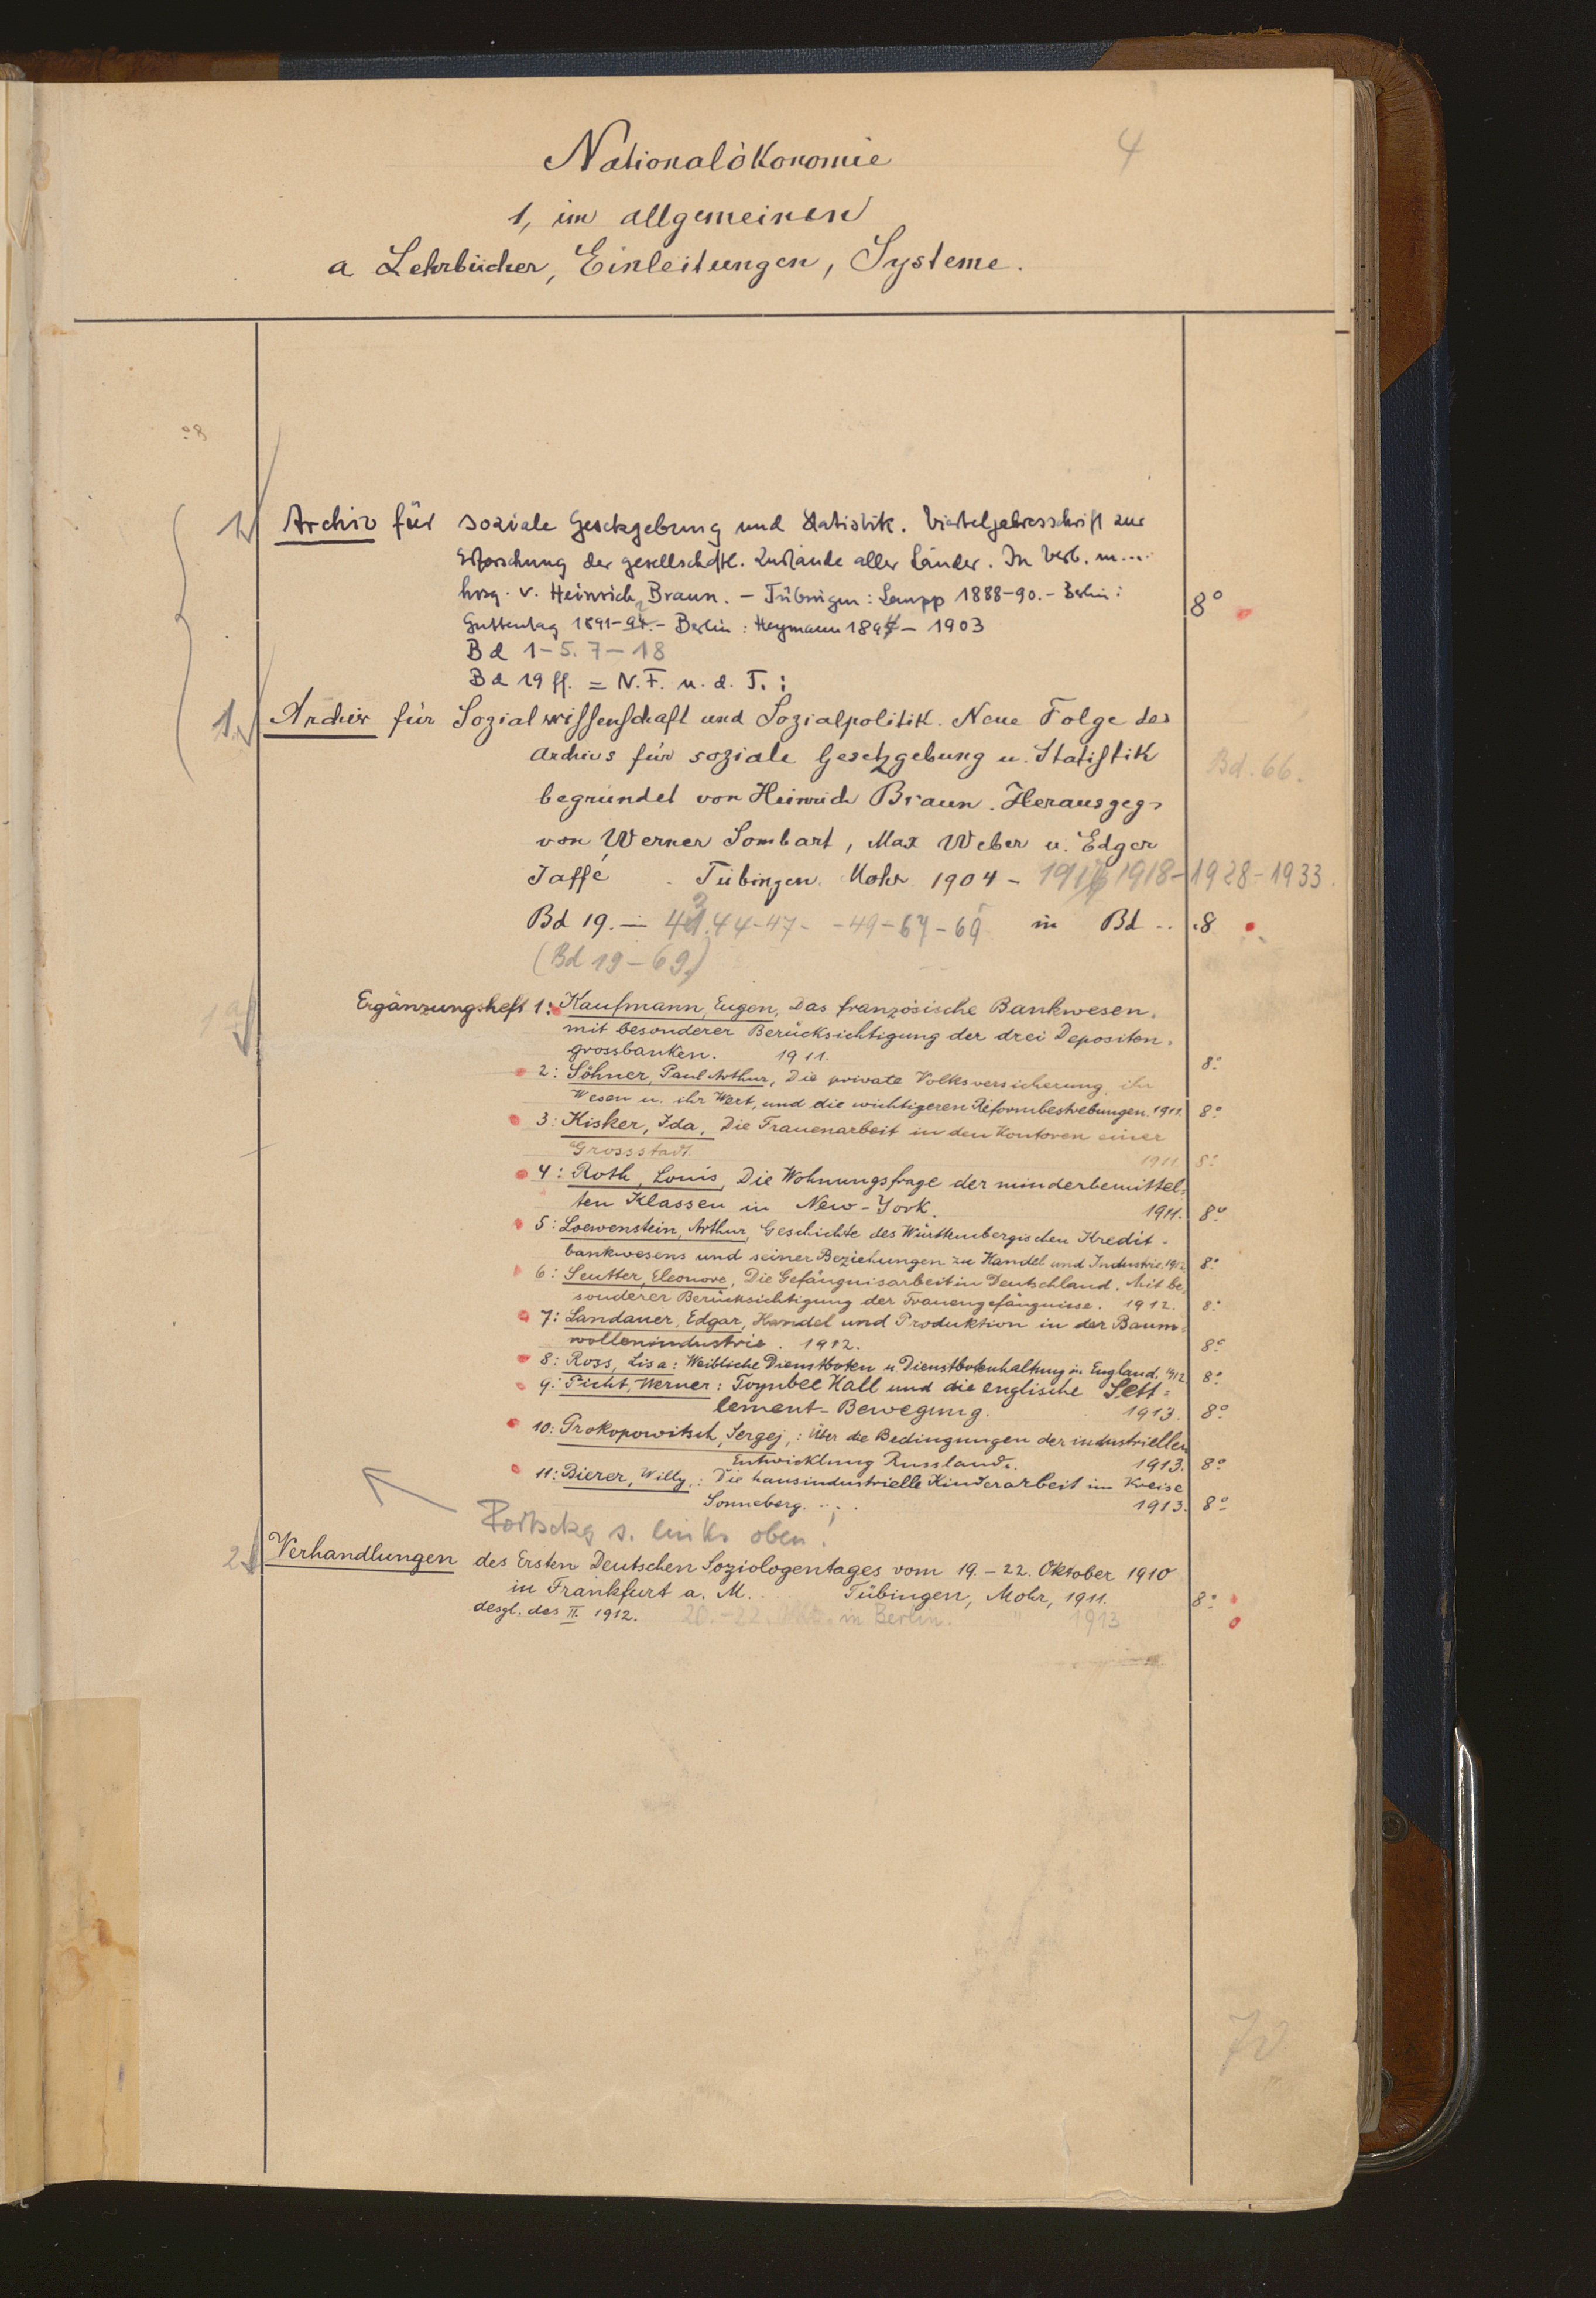 4
Nationalökonomie
1, im allgemeinen
a Lehrbücher, Einleitungen, Systeme.
1, Archiv für soziale Gesetzgebung und Statistik. Vierteljahresschrift zur
Erforschung der gesellschftl. Zustände aller Länder. In Verb. m....
hrsg. v. Heinrich Braun. – Tübingen: Laupp 1888–90. – Berlin: 8°
Guttentag 1891–94. – Berlin: Heymann 1894 – 1903
Bd 1–5. 7–18
Bd 19 ff. = N.F. u. d. T.:
1. Archiv für Sozialwissenschaft und Sozialpolitik. Neue Folge des
Archivs für soziale Gesetzgebung u. Statistik
Bd. 66.
begründet von Heinrich Braun. Herausgeg.
von Werner Sombart, Max Weber u. Edgar
Jaffé. Tübingen. Mohr 1904 – 1918–1928–1933.
Bd 19. – 44–47– –49–67–69 in Bd .. 8
(Bd 19–69)
1a Ergänzungsheft 1: Kaufmann, Eugen, Das französische Bankwesen.
mit besonderer Berücksichtigung der drei Depositen-
grossbanken. 1911. 8°
2: Söhner, Paul Arthur, Die private Volksversicherung, ihr
Wesen u. ihr Wert, und die wichtigeren Reformbestrebungen. 1911. 8°
3: Kisker, Ida, Die Frauenarbeit in den Kontoren einer
Grossstadt. 1911. 8°
4: Roth, Louis, Die Wohnungsfrage der minderbemittel-
ten Klassen in New-York. 1911. 8°
5: Loewenstein, Arthur, Geschichte des Württembergischen Kredit-
bankwesens und seiner Beziehungen zu Handel und Industrie. 1912. 8°
6: Seutter, Eleonore, Die Gefängnisarbeit in Deutschland. Mit be-
sonderer Berücksichtigung der Frauengefängnisse. 1912. 8°
7: Landauer, Edgar, Handel und Produktion in der Baum-
wollenindustrie. 1912. 8°
8: Ross, Lisa: Weibliche Dienstboten u. Dienstbotenhaltung in England. 1912. 8°
9: Picht, Werner: Toynbee Hall und die englische Sett=
lement-Bewegung. 1913. 8°
10: Prokopowitsch, Sergej,: Über die Bedingungen der industriellen
Entwicklung Russlands. 1913. 8°
11: Bierer, Willy,: Die hausindustrielle Kinderarbeit im Kreise
Sonneberg. 1913. 8°
Fortsetzg s. links oben!
2. Verhandlungen des Ersten Deutschen Soziologentages vom 19.–22. Oktober 1910
in Frankfurt a. M. Tübingen, Mohr, 1911. 8°
desgl. des II. 1912. 20.–22. Okt. in Berlin. " 1913